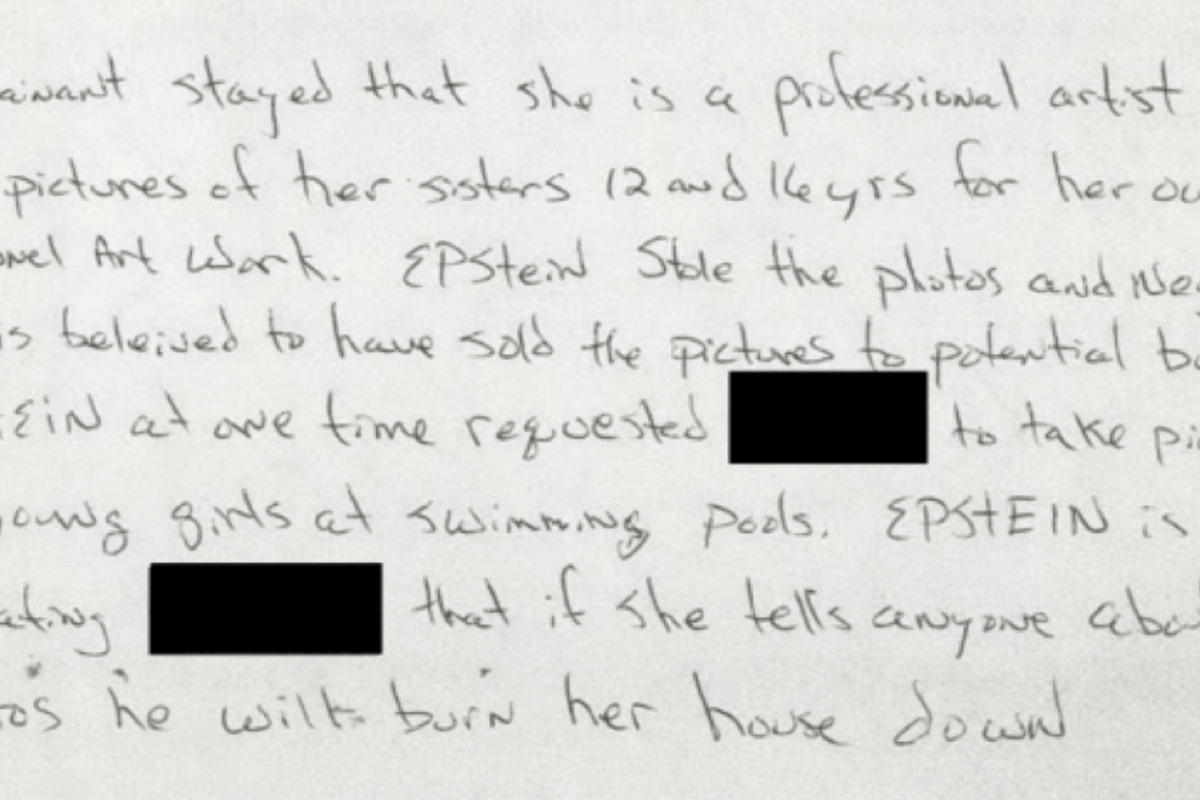 ainant stayed that she is a professional artist
pictures of her sisters 12 and 16 yrs for her ow
onel Art Work. EPStein Stole the photos and Neg
is beleived to have sold the pictures to potential bu
EiN at one time requested to take pic
young girls at swimming pools. EPStEIN is
ating that if she tells anyone abo
tos he will burn her house down